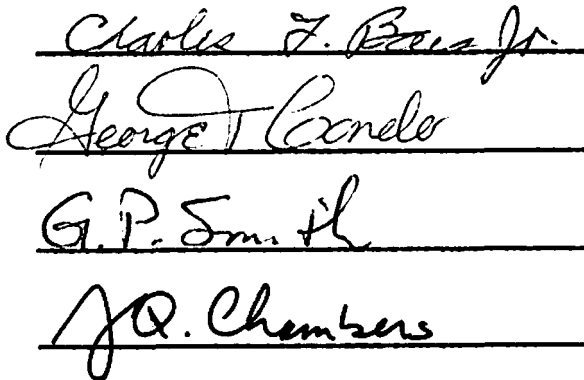 Charles F. Baes Jr.
George T Condo
G.P. Smith
J Q. Chambers